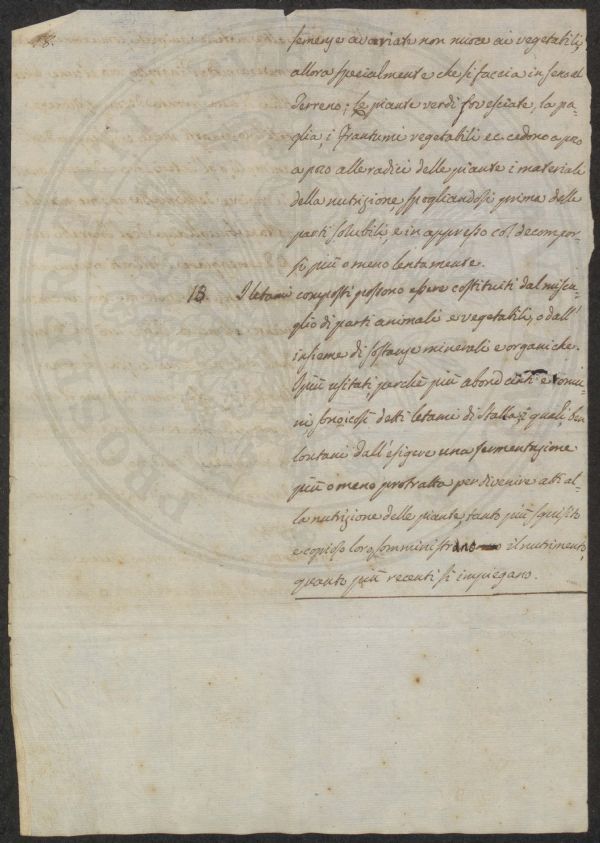 18.
semenze avariate non nuoce ai vegetabili,
allora specialmente che si faccia in seno al
Terreno; le piante verdi sovesciate, la pa-
glia, i frantumi vegetabili ec cedono a poco
a poco alle radici delle piante i materiali
della nutrizione, spogliandosi prima delle
parti solubili, e in appresso col decompor-
si più o meno lentamente.
13 I letami composti possono essere costituiti dal miscu-
glio di parti animali e vegetabili, o dall'
insieme di sostanze minerali e organiche.
I più usitati, perchè più abondanti e comu-
ni, son i così detti letami di stalla, i quali, ben
lontani dall'esigere una fermentazione
più o meno protratta per divenire atti al-
la nutrizione delle piante, tanto più squisito
e copioso loro somministrano il nutrimento,
quanto più recenti si impiegano.